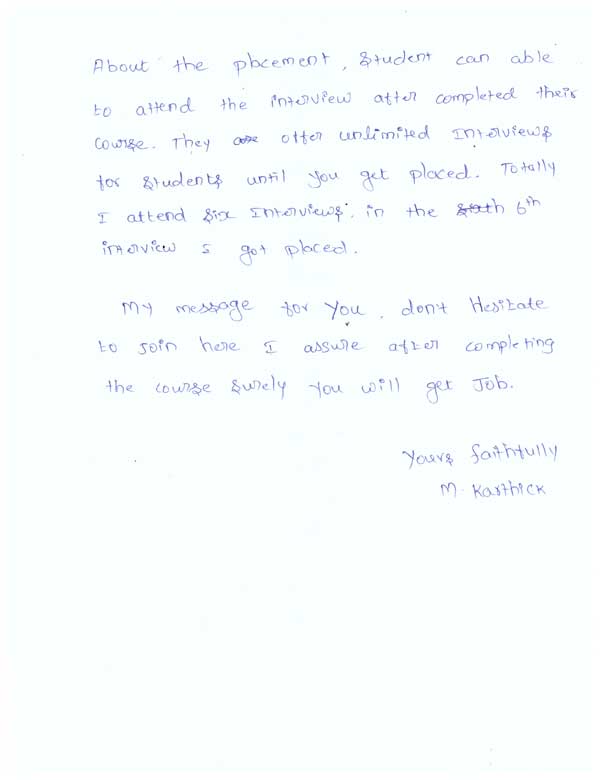 About the plcement, student can able
to attend the interview after completed their
course. They are offer unlimited Interviews
for students until you get placed. Totally
I attend six Interviews. in the sixth 6th
interview I got placed.
My message for you, don't Hesitate
to join here I assure after completing
the course surely you will get Job.
Yours faithfully
M. Karthick